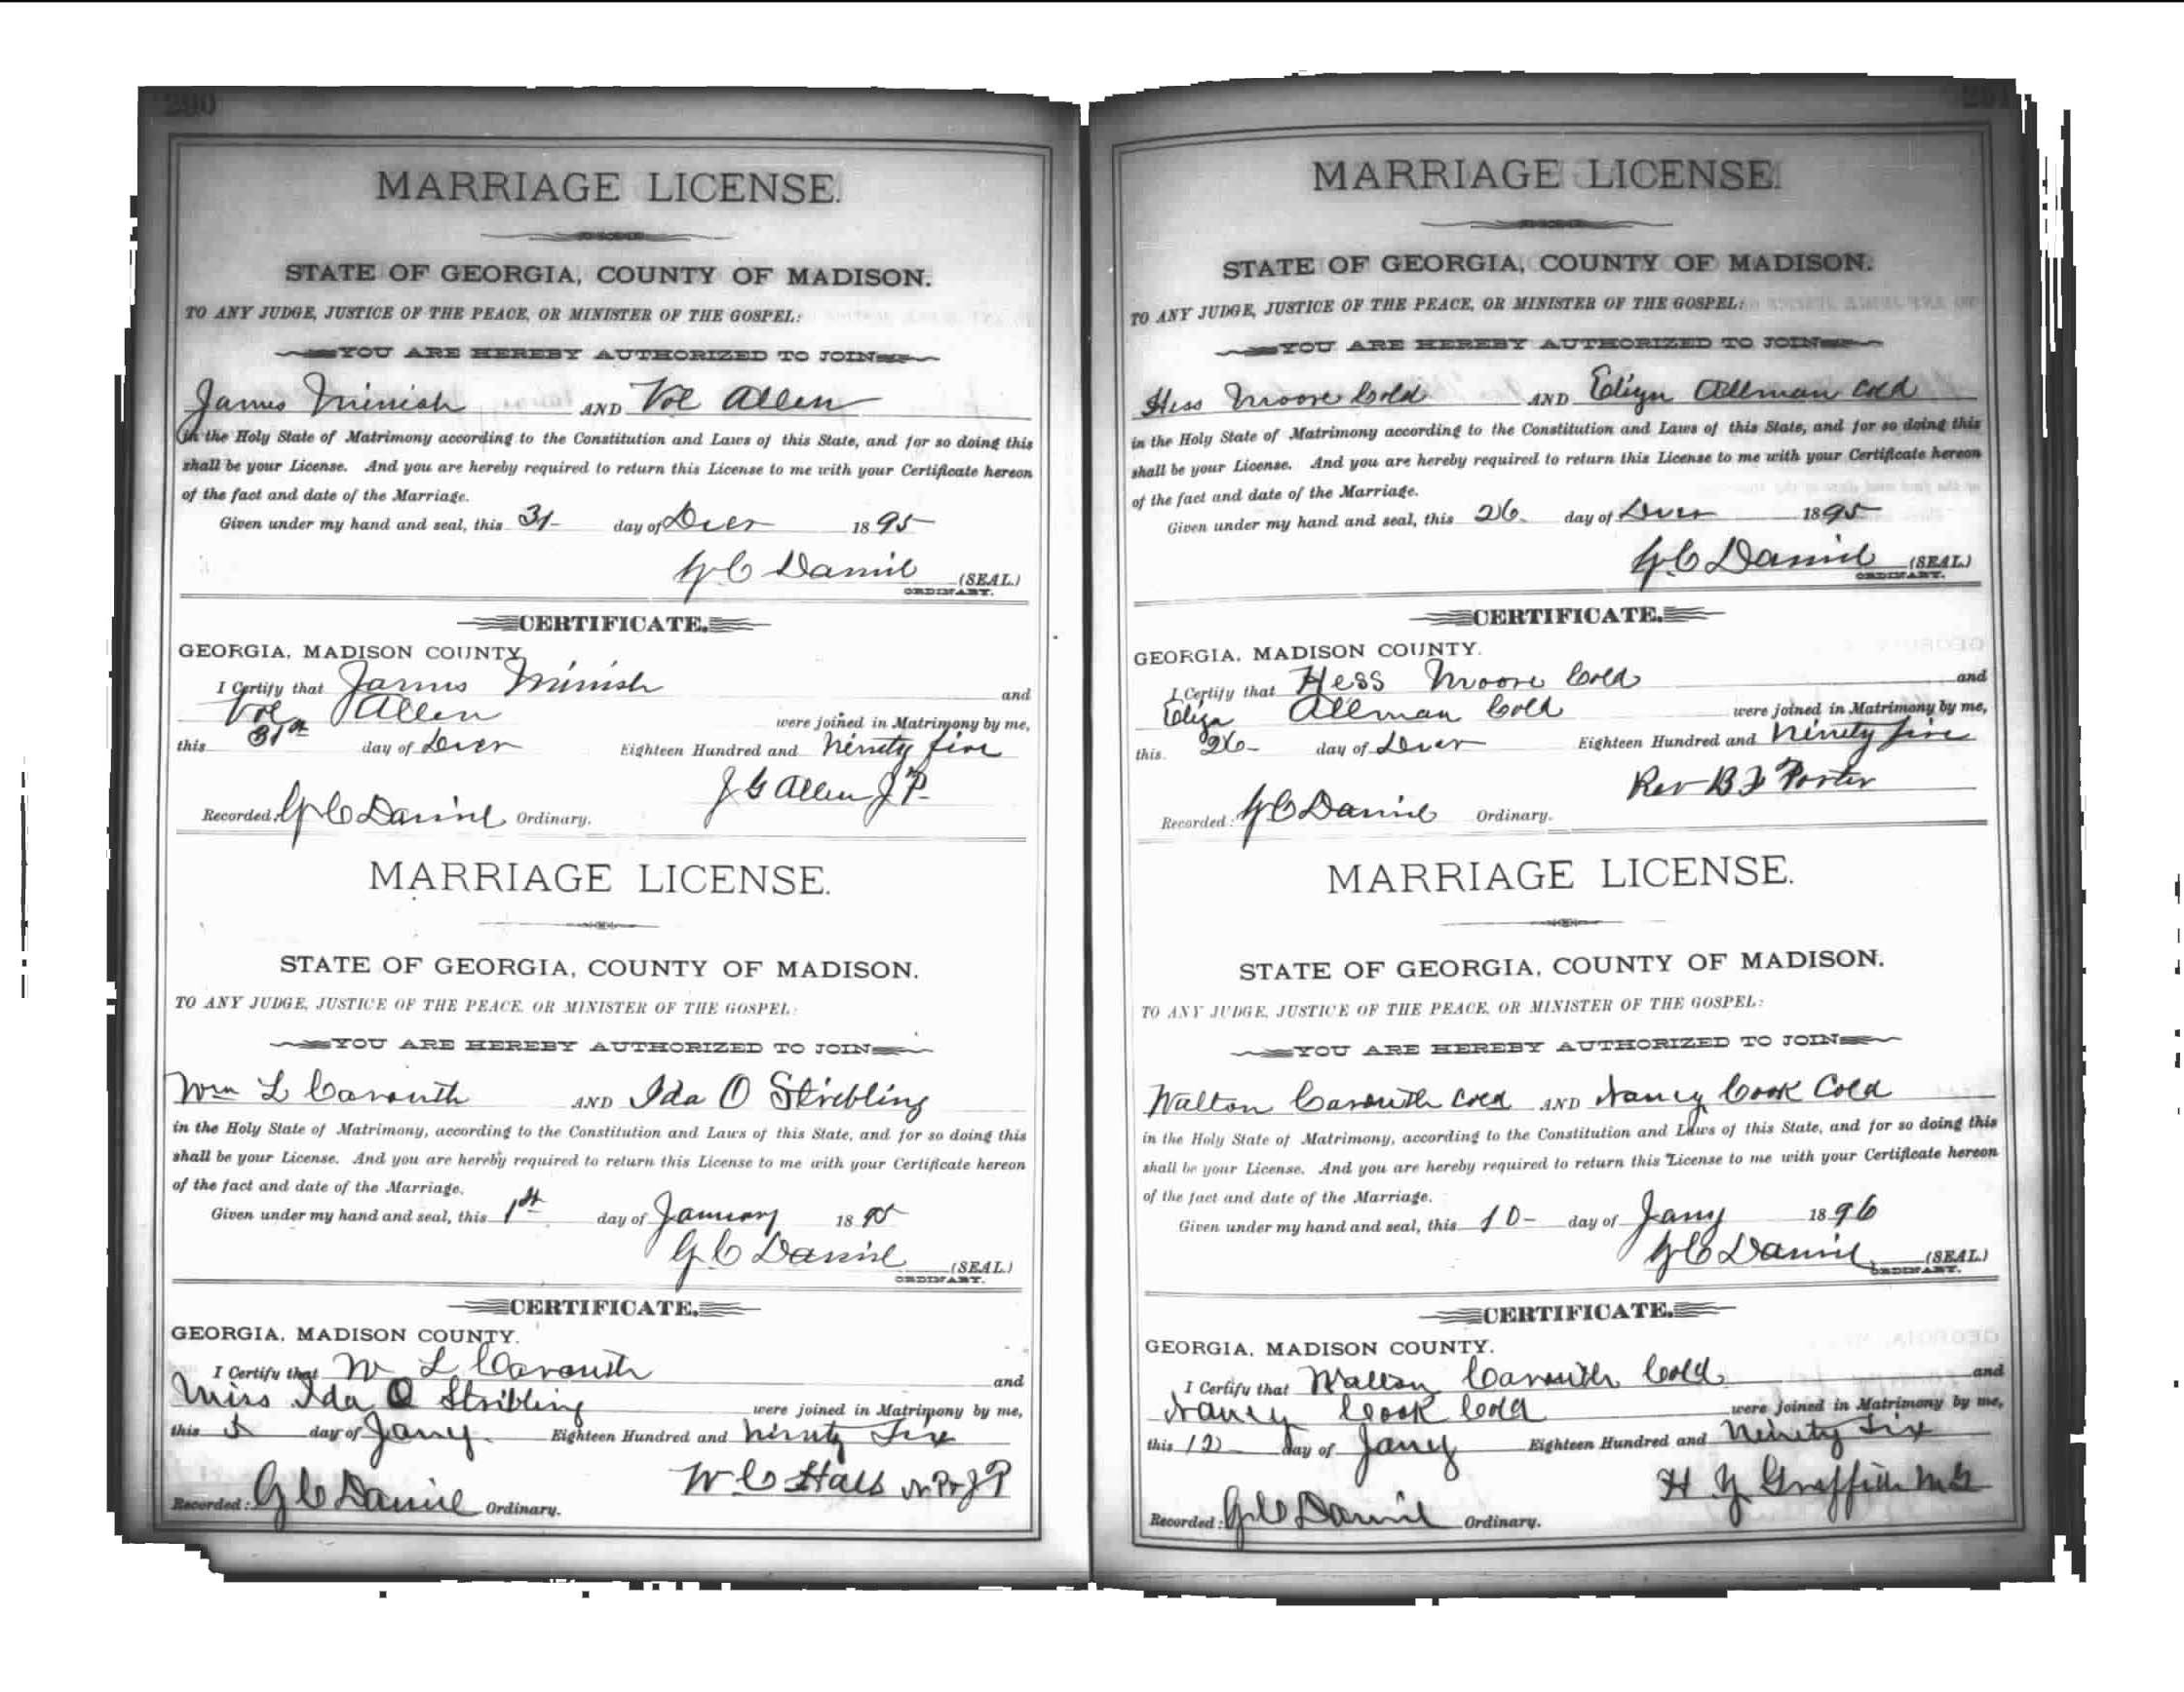 290
MARRIAGE LICENSE.
STATE OF GEORGIA, COUNTY OF MADISON.
TO ANY JUDGE, JUSTICE OF THE PEACE, OR MINISTER OF THE GOSPEL:
YOU ARE HEREBY AUTHORIZED TO JOIN
James Minish AND Vol Allen
in the Holy State of Matrimony according to the Constitution and Laws of this State, and for so doing this
shall be your License. And you are hereby required to return this License to me with your Certificate hereon
of the fact and date of the Marriage.
Given under my hand and seal, this 31 day of Decr 1895
G C Daniel (SEAL.)
ORDINARY.
CERTIFICATE.
GEORGIA, MADISON COUNTY.
I Certify that James Minish and
Vol Allen were joined in Matrimony by me,
this 31st day of Decr Eighteen Hundred and Ninety five
J G Allen J P.
Recorded: G C Daniel Ordinary.
MARRIAGE LICENSE.
STATE OF GEORGIA, COUNTY OF MADISON.
TO ANY JUDGE, JUSTICE OF THE PEACE, OR MINISTER OF THE GOSPEL:
YOU ARE HEREBY AUTHORIZED TO JOIN
Wm L Carouth AND Ida O Stribling
in the Holy State of Matrimony, according to the Constitution and Laws of this State, and for so doing this
shall be your License. And you are hereby required to return this License to me with your Certificate hereon
of the fact and date of the Marriage.
Given under my hand and seal, this 1st day of January 18
G C Daniel (SEAL.)
ORDINARY.
CERTIFICATE.
GEORGIA, MADISON COUNTY.
I Certify that W L Carouth and
Miss Ida O Stribling were joined in Matrimony by me,
this day of Jany. Eighteen Hundred and Ninety Six
W C Hall N P & J P
Recorded: G C Daniel Ordinary.
291
MARRIAGE LICENSE.
STATE OF GEORGIA, COUNTY OF MADISON.
TO ANY JUDGE, JUSTICE OF THE PEACE, OR MINISTER OF THE GOSPEL:
YOU ARE HEREBY AUTHORIZED TO JOIN
Hess Moore Cold AND Eliza Allman Cold
in the Holy State of Matrimony according to the Constitution and Laws of this State, and for so doing this
shall be your License. And you are hereby required to return this License to me with your Certificate hereon
of the fact and date of the Marriage.
Given under my hand and seal, this 26. day of Decr 1895
G C Daniel (SEAL.)
ORDINARY.
CERTIFICATE.
GEORGIA, MADISON COUNTY.
I Certify that Hess Moore Cold and
Eliza Allman Cold were joined in Matrimony by me,
this 26 day of Decr Eighteen Hundred and Ninety five
Rev B F Porter
Recorded: G C Daniel Ordinary.
MARRIAGE LICENSE.
STATE OF GEORGIA, COUNTY OF MADISON.
TO ANY JUDGE, JUSTICE OF THE PEACE, OR MINISTER OF THE GOSPEL:
YOU ARE HEREBY AUTHORIZED TO JOIN
Walton Carouth Cold AND Nancy Cook Cold
in the Holy State of Matrimony, according to the Constitution and Laws of this State, and for so doing this
shall be your License. And you are hereby required to return this License to me with your Certificate hereon
of the fact and date of the Marriage.
Given under my hand and seal, this 10 day of Jany 1896
G C Daniel (SEAL.)
ORDINARY.
CERTIFICATE.
GEORGIA, MADISON COUNTY.
I Certify that Walton Carouth Cold and
Nancy Cook Cold were joined in Matrimony by me,
this 12 day of Jany Eighteen Hundred and Ninety Six
H Y Griffith M G
Recorded: G C Daniel Ordinary.